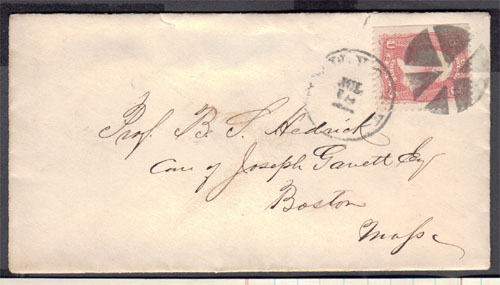 JUL
Prof. B. S. Hedrick
Care of Joseph Gavett Esq
Boston
Mass